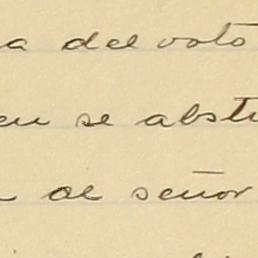 a del voto
en se abst
al señor